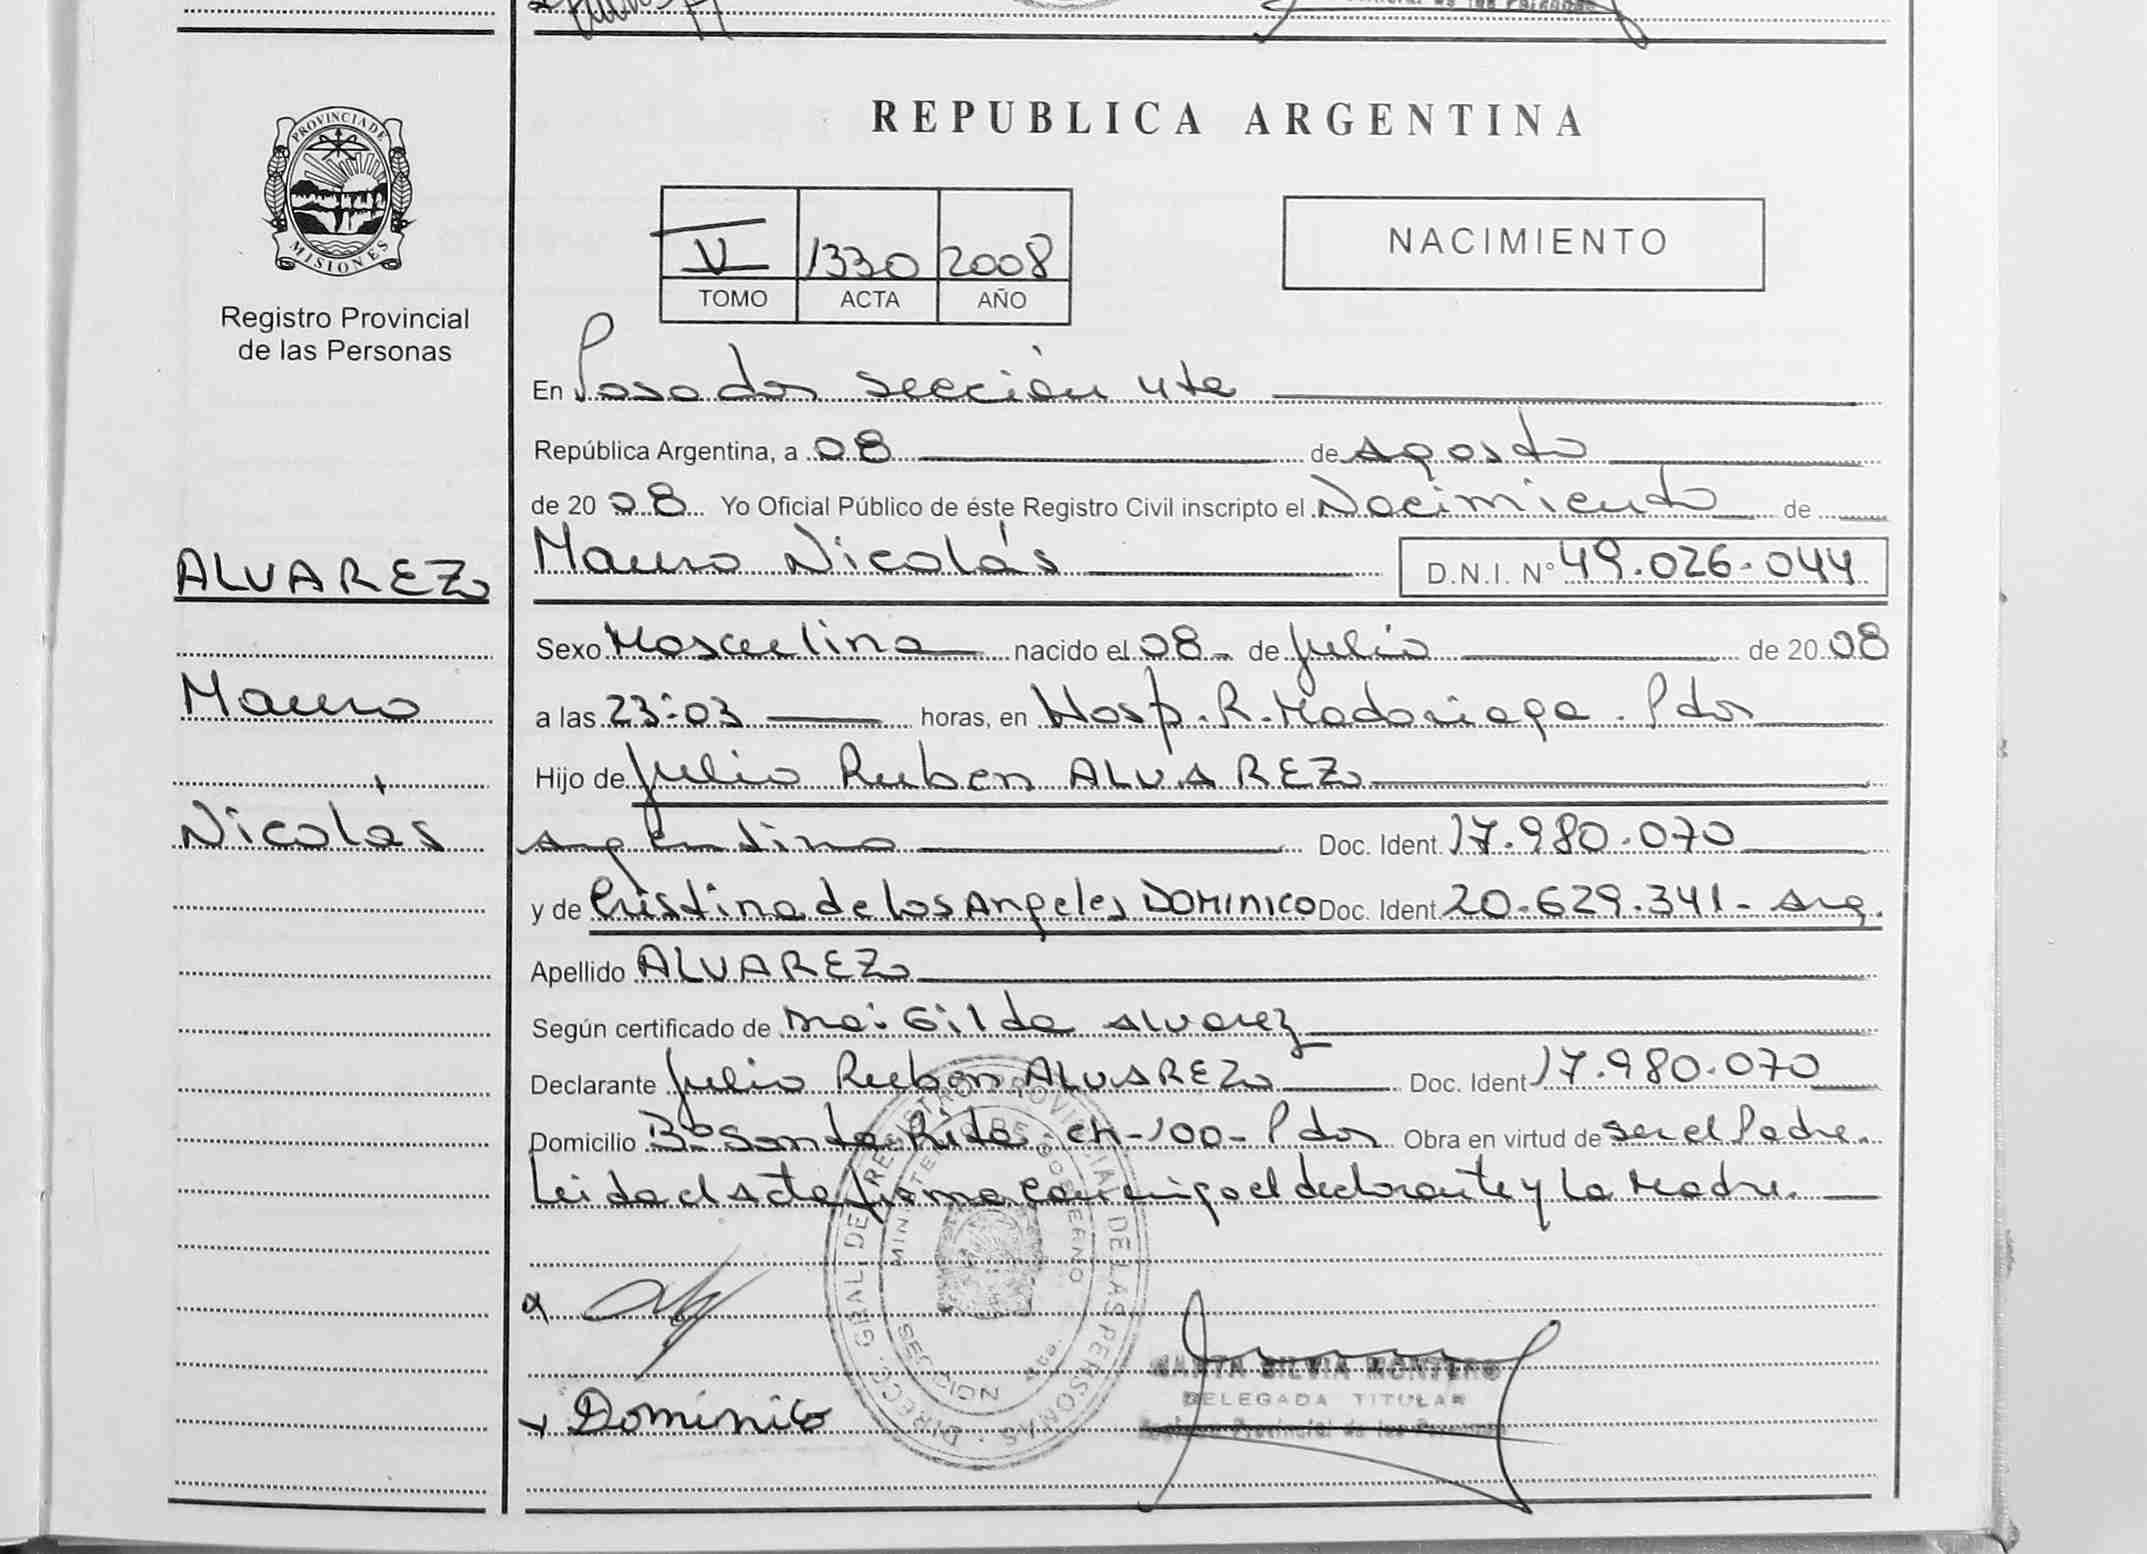 PROVINCIA DE
MISIONES
Registro Provincial
de las Personas
ALVAREZ
Mauro
Nicolás
REPUBLICA ARGENTINA
V 1330 2008
TOMO ACTA AÑO
NACIMIENTO
En Posadas sección 4ta
República Argentina, a 08 de agosto
de 20 08 Yo Oficial Público de éste Registro Civil inscripto el Nacimiento de
Mauro Nicolás D.N.I. N° 49.026.044
Sexo Masculino nacido el 08 de Julio de 20 08
a las 23:03 horas, en Hosp. R. Madariaga. Pdas
Hijo de Julio Ruben ALVAREZ
argentino Doc. Ident. 17.980.070
y de Cristina de los Angeles DOMINICO Doc. Ident. 20.629.341 - Arg.
Apellido ALVAREZ
Según certificado de Ma: Gilda Alvarez
Declarante Julio Ruben ALVAREZ Doc. Ident 17.980.070
Domicilio Bº Santa Rita - CH-100 - Pdas Obra en virtud de ser el Padre.
Leida el Acta firma conmigo el declarante y la Madre.
DIRECC. GRAL. DE REGISTRO PROVINCIAL DE LAS PERSONAS
MINISTERIO DE GOBIERNO
Dominico
MARTA SILVIA MONTERO
DELEGADA TITULAR
Registro Provincial de las Personas